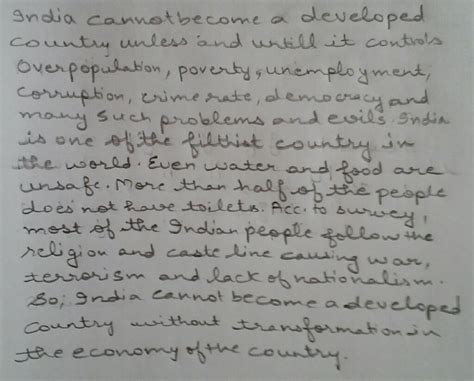 India cannot become a developed
country unless and untill it controls
Overpopulation, poverty, unemployment,
corruption, crime rate, democracy and
many such problems and evils. India
is one of the filthist country in
the world. Even water and food are
unsafe. More than half of the people
does not have toilets. Acc. to survey,
most of the Indian people follow the
religion and caste line causing war,
terrorism and lack of nationalism.
So, India cannot become a developed
country without transformation in
the economy of the country.